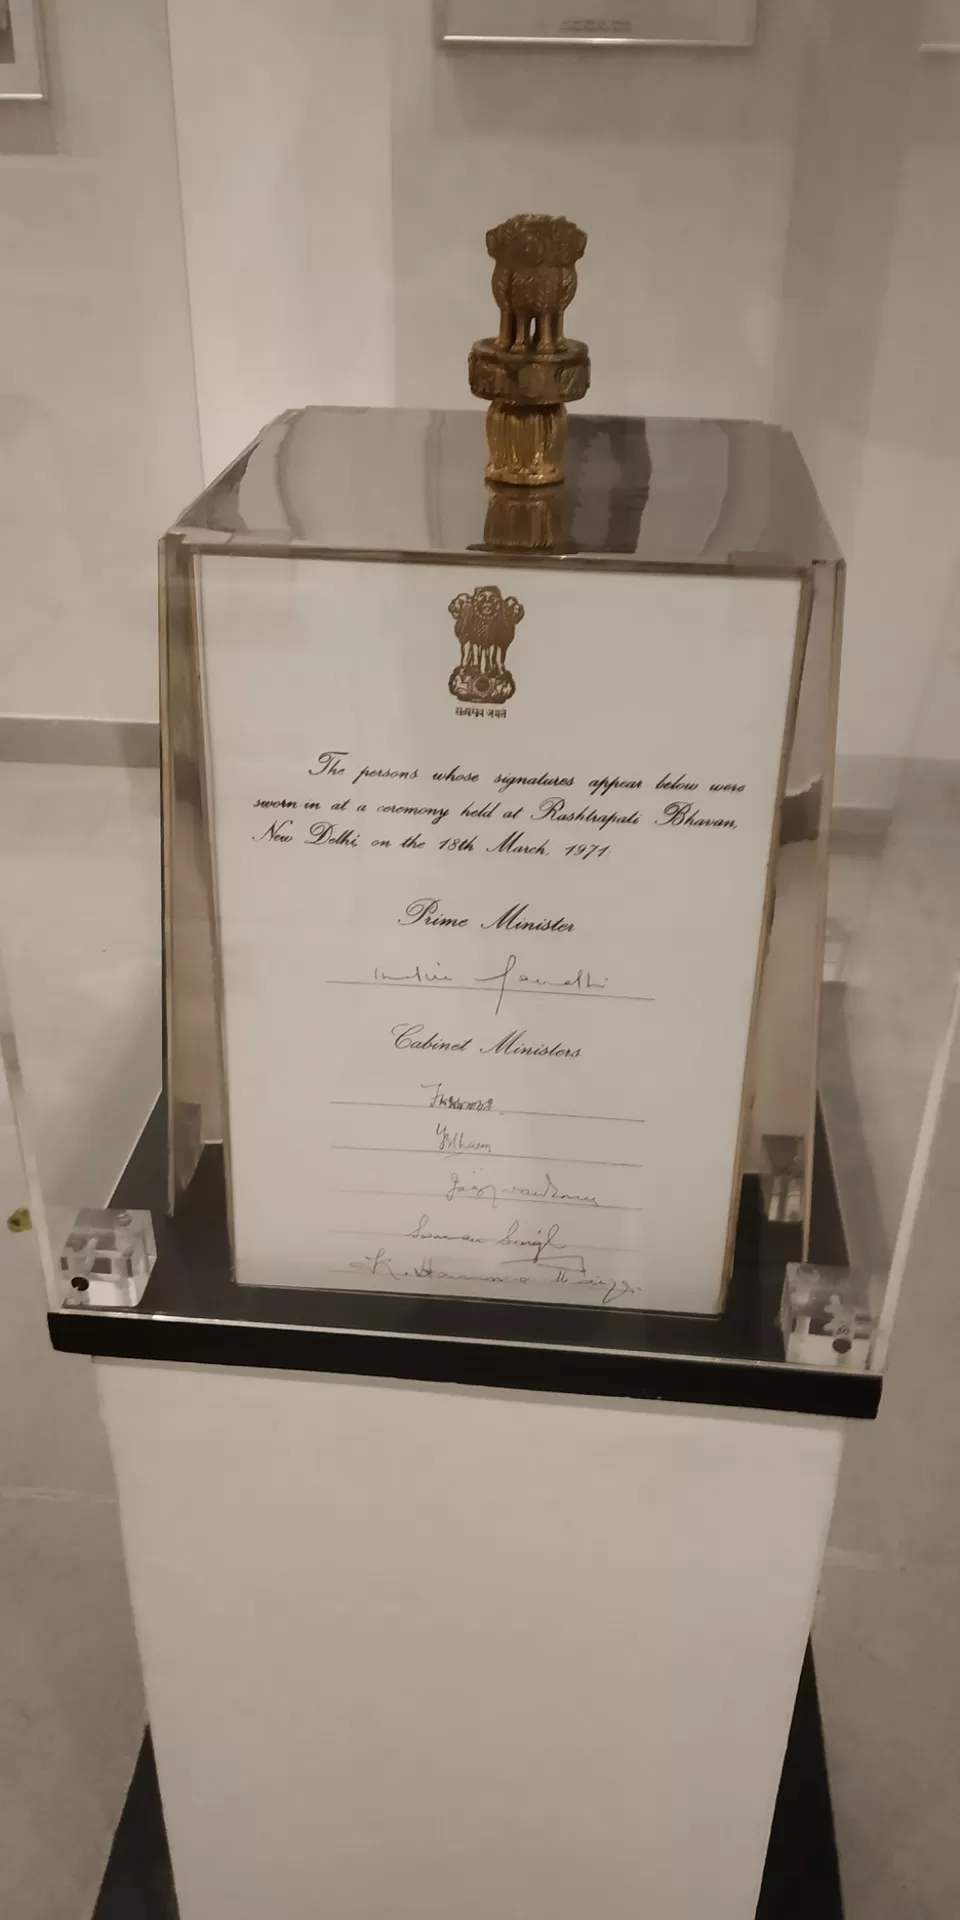 सत्यमेव जयते
The persons whose signatures appear below were
sworn-in at a ceremony held at Rashtrapati Bhavan,
New Delhi, on the 18th March, 1971.
Prime Minister
Indira Gandhi
Cabinet Ministers
Swaran Singh